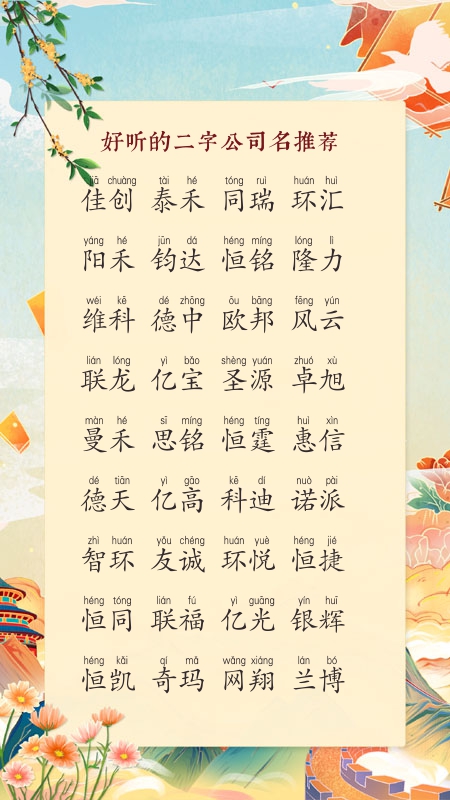 好听的二字公司名推荐
jiā chuàng tài hé tóng ruì huán huì
佳创 泰禾 同瑞 环汇
yáng hé jūn dá héng míng lóng lì
阳禾 钧达 恒铭 隆力
wéi kē dé zhōng ōu bāng fēng yún
维科 德中 欧邦 风云
lián lóng yì bǎo shèng yuán zhuó xù
联龙 亿宝 圣源 卓旭
màn hé sī míng héng tíng huì xìn
曼禾 思铭 恒霆 惠信
dé tiān yì gāo kē dí nuò pài
德天 亿高 科迪 诺派
zhì huán yǒu chéng huán yuè héng jié
智环 友诚 环悦 恒捷
héng tóng lián fú yì guāng yín huī
恒同 联福 亿光 银辉
héng kǎi qí mǎ wǎng xiáng lán bó
恒凯 奇玛 网翔 兰博